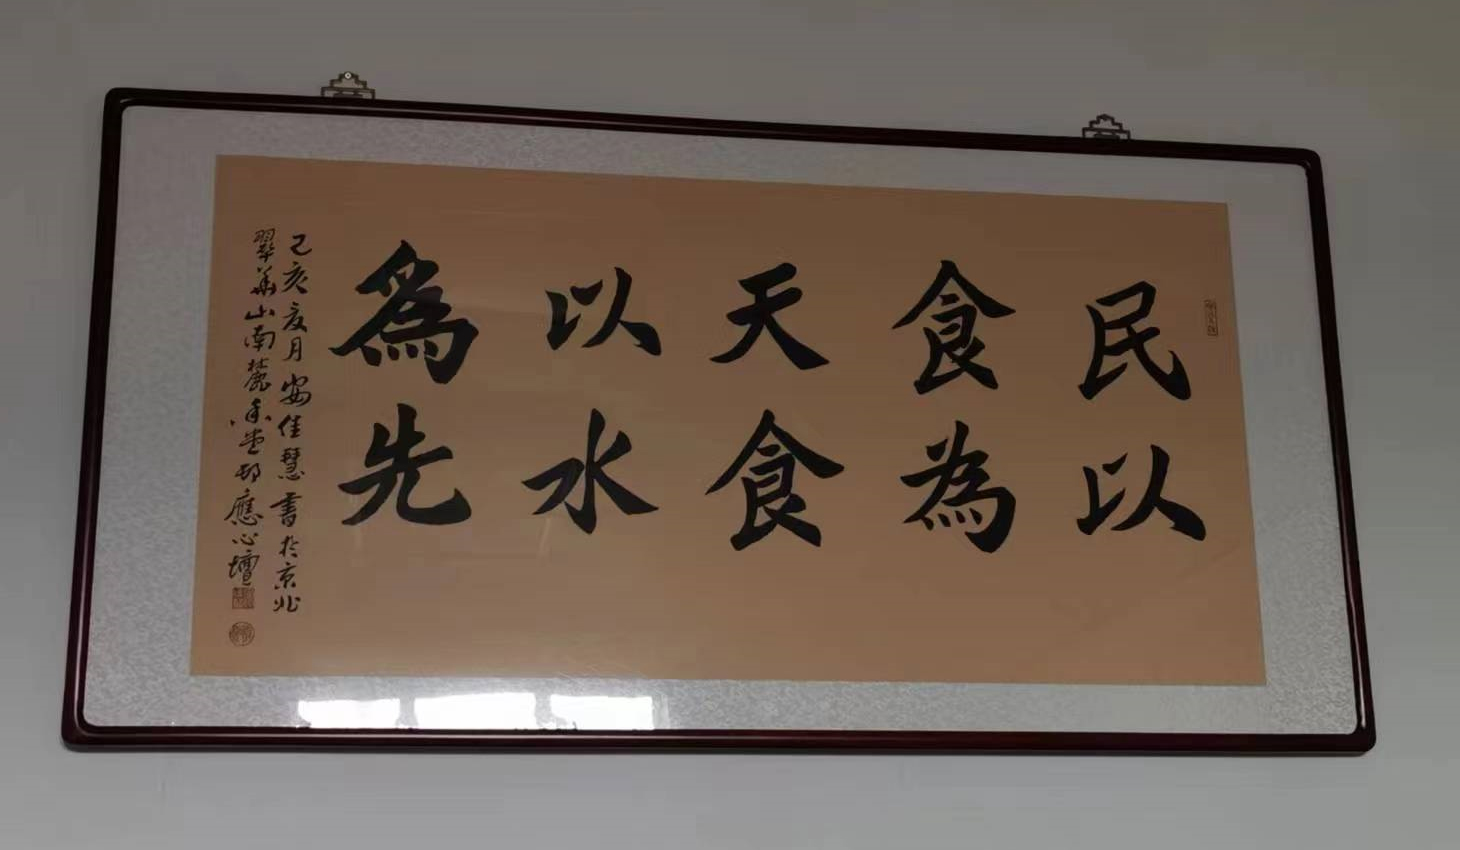 民以
食為
天食
以水
為先
己亥夏月安佳慧書於京北
翠華山南麓香堂邨應心壇